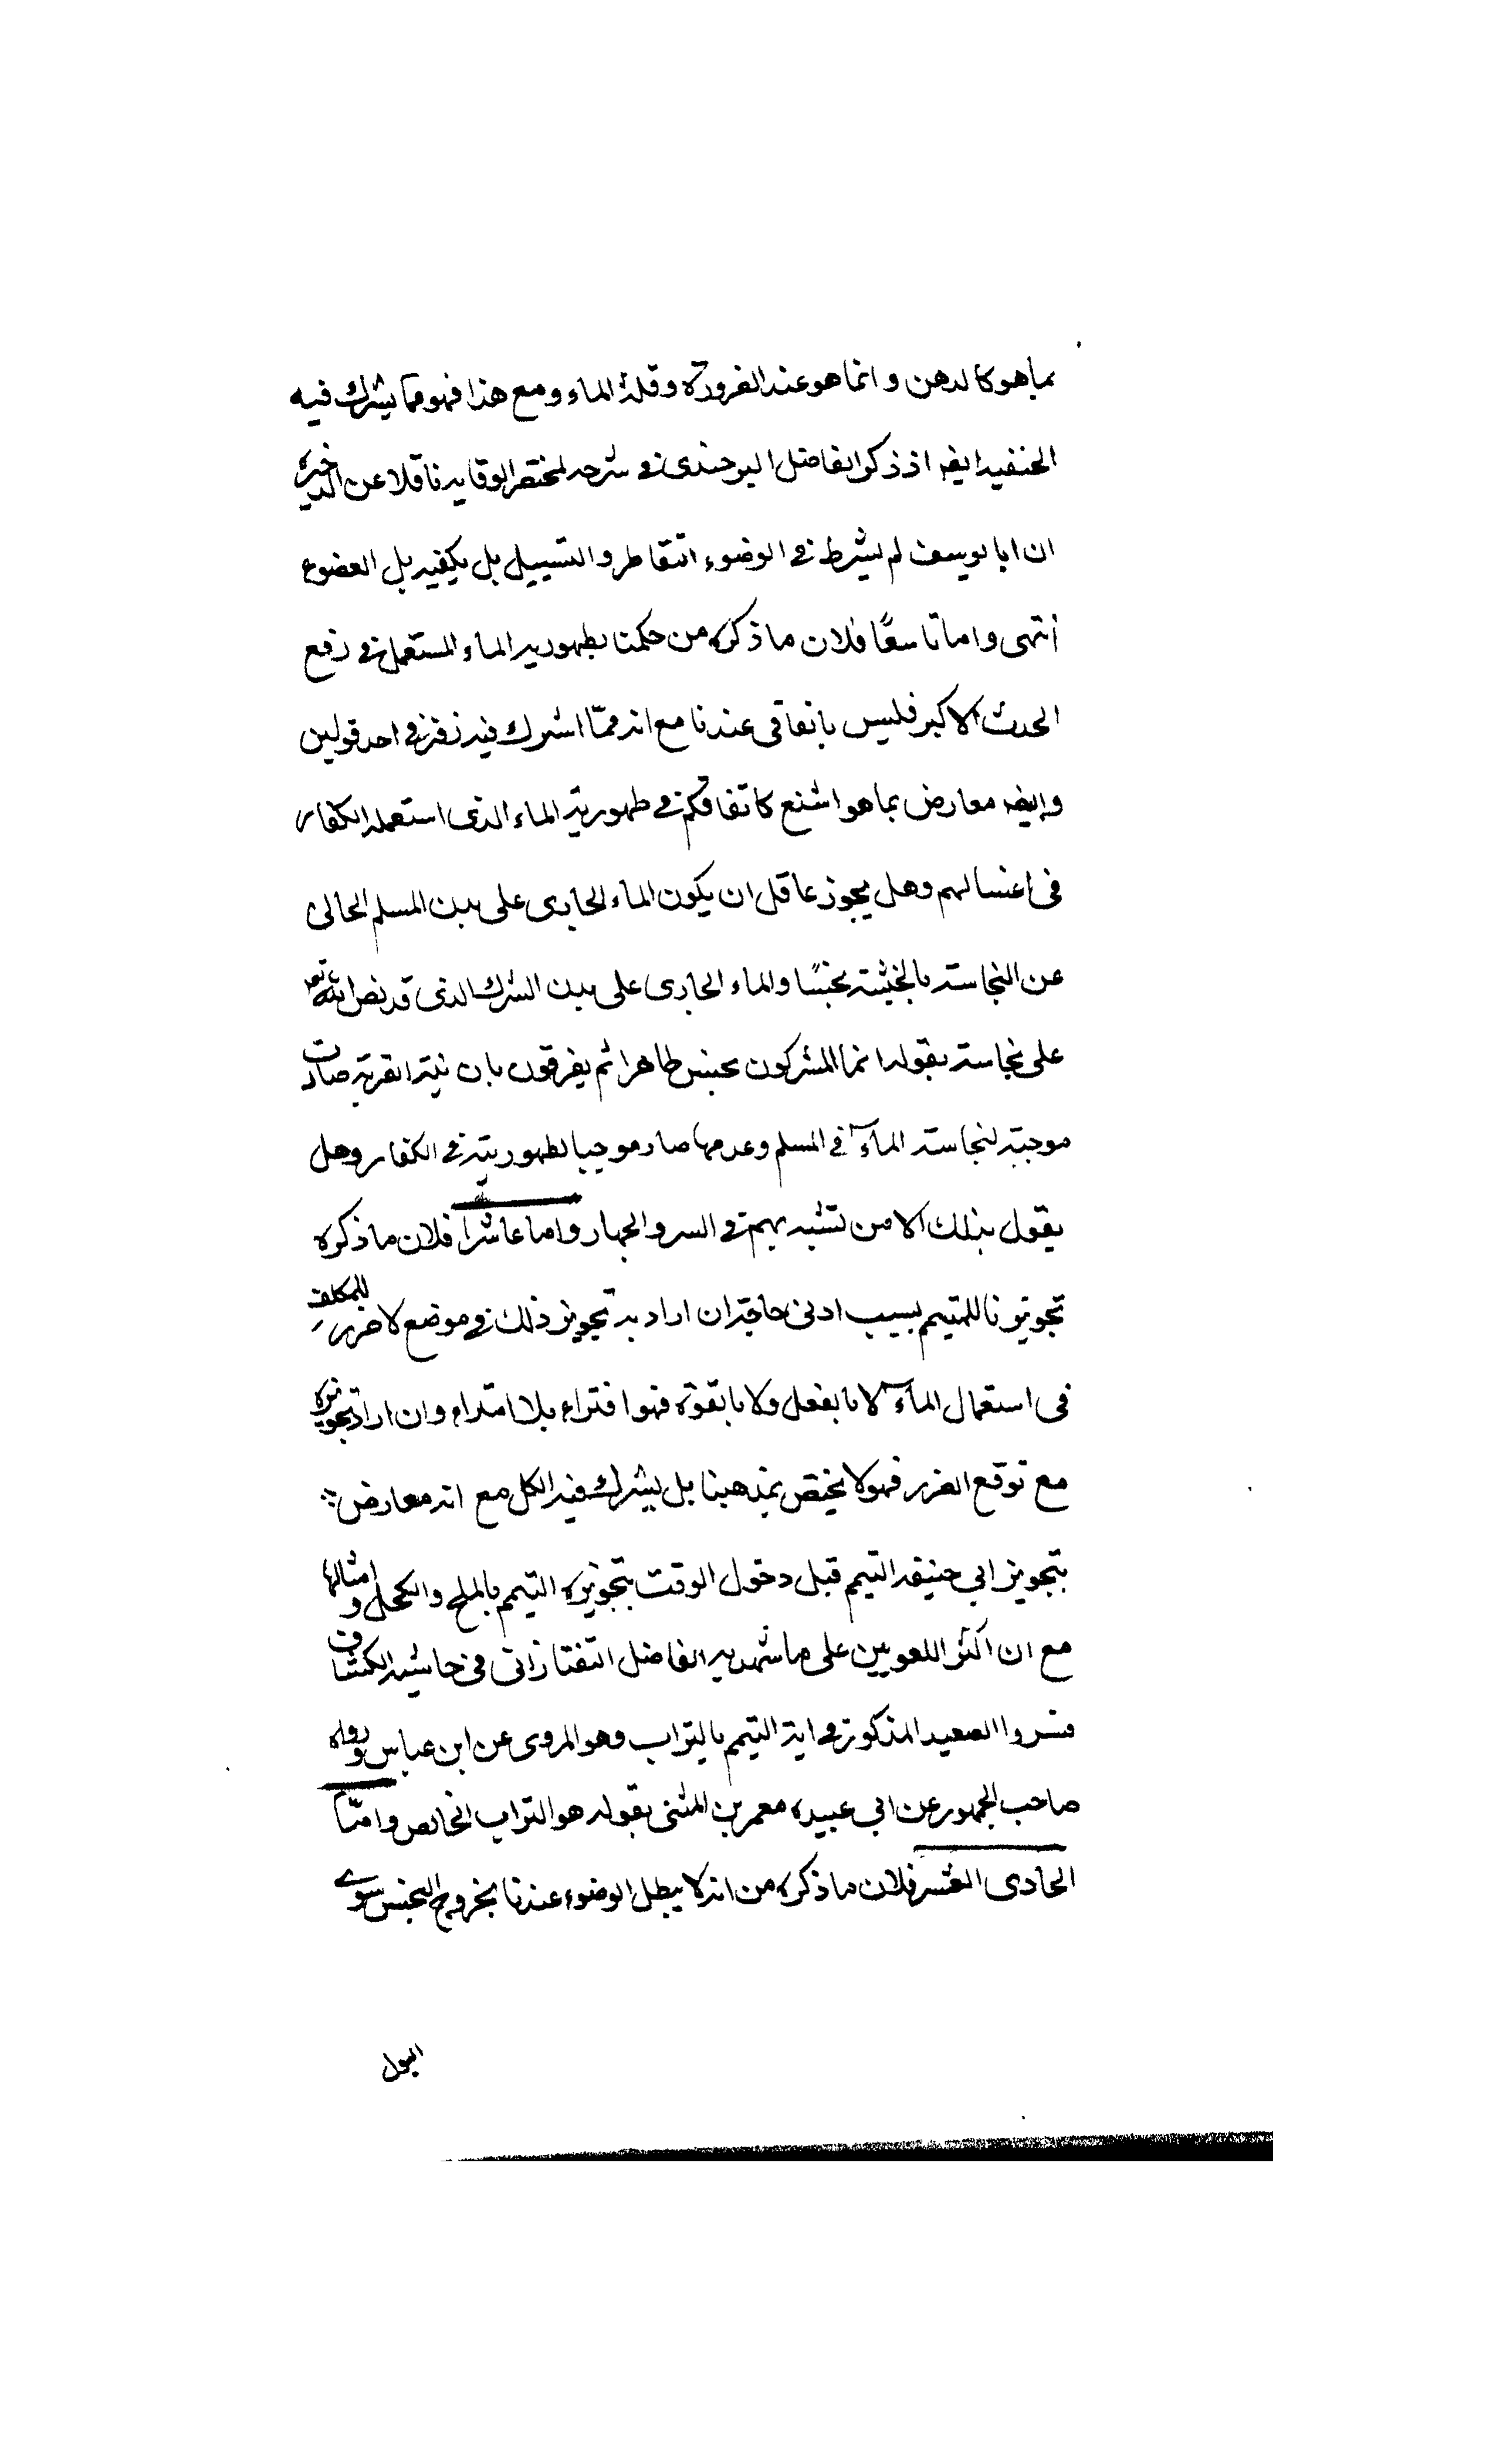 بما هو كالدهن وانما هو عند الضرورة وقلة الماء ومع هذا فهو مما يشترك فيه
الحنفية ايضا اذ ذكر الفاضل البرجندى فى شرحه لمختصر الوقاية ناقلا عن الذخيرة
ان ابا يوسف لم يشترط فى الوضوء التقاطر والتسييل بل يكفيه بل العضو
انتهى واما تاسعًا فلان ما ذكره من حكمنا بطهورية الماء المستعمل فى رفع
الحدث الاكبر فليس باتفاقى عندنا مع انه ممّا اشترك فيه زفر فى احد قولين
وايضا معارض بما هو اشنع كاتفاقكم فى طهورية الماء الذى استعمله الكفار
فى اغتسالهم وهل يجوز عاقل ان يكون الماء الجارى على بدن المسلم الخالى
عن النجاسة بالخبثية نجسًا والماء الجارى على بدن المشرك الذى قد نص الله تع
على نجاسته بقوله انما المشركون نجس طاهرا ثم يفرقون بان نية القربة صارت
موجبة لنجاسة الماء فى المسلم وعدمها صار موجبا لطهوريته فى الكفار وهل
يقول بذلك الا من تشبه بهم فى السر والجهار واما عاشرا فلان ما ذكره
تجويزنا للمتيمم بسبب ادنى حاجة ان اراد به تجويز ذلك فى موضع لا ضرر للمكلف
فى استعمال الماء لا بالفعل ولا بالقوة فهو افتراء بلا امتراء وان اراد تجويزه
مع توقع الضرر فهو لا يختص بمذهبنا بل يشترك فيه الكل مع انه معارض
بتجويز ابي حنيفة التيمم قبل دخول الوقت بتجويزه التيمم بالملح والكحل وامثالها
مع ان اكثر اللغويين على ما شهد به الفاضل التفتازانى فى حاشية الكشاف
فسروا الصعيد المذكور فى اية التيمم بالتراب وهو المروى عن ابن عباس ورواه
صاحب الجمهور عن ابي عبيده معمر بن المثنى بقوله هو التراب الخالص وامّا
الحادى العشر فلان ما ذكره من انه لا يبطل الوضوء عندنا بخروج النجس سوى
البول